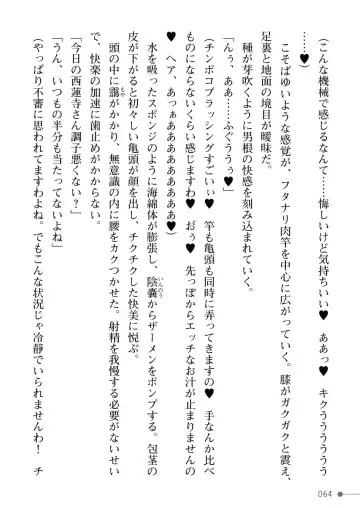 （こんな機械で感じるなんて……悔しいけど気持ちいい♥　ああっ♥　キクうううううう
う……っ♥）
こそばゆいような感覚が、フタナリ肉竿を中心に広がっていく。膝がガクガクと震え、
足裏と地面の境目が曖昧だ。
種が芽吹くように男根の快感を刻み込まれていく。
「んぅ、ああ……ふぐううぅ♥」
（チンポコブラッシングすごいぃ♥　竿も亀頭も同時に弄ってきますの♥　手なんか比べ
ものにならないくらい感じますわ♥　おぅ♥　先っぽからエッチなお汁が止まりませんの
♥　へア、あっぁああああああああ♥）
水を吸ったスポンジのように海綿体が膨張し、陰嚢からザーメンをポンプする。包茎の
皮が下がると初々しい亀頭が顔を出し、チクチクした快美に悦ぶ。
頭の中に靄がかかり、無意識の内に腰をカクつかせた。射精を我慢する必要がないせい
で、快楽の加速に歯止めがかからない。
「今日の西蓮寺さん調子悪くない？」
「うん、いつもの半分も当たってないよね」
（やっぱり不審に思われてますわよね。でもこんな状況じゃ冷静でいられませんわ！　チ
064